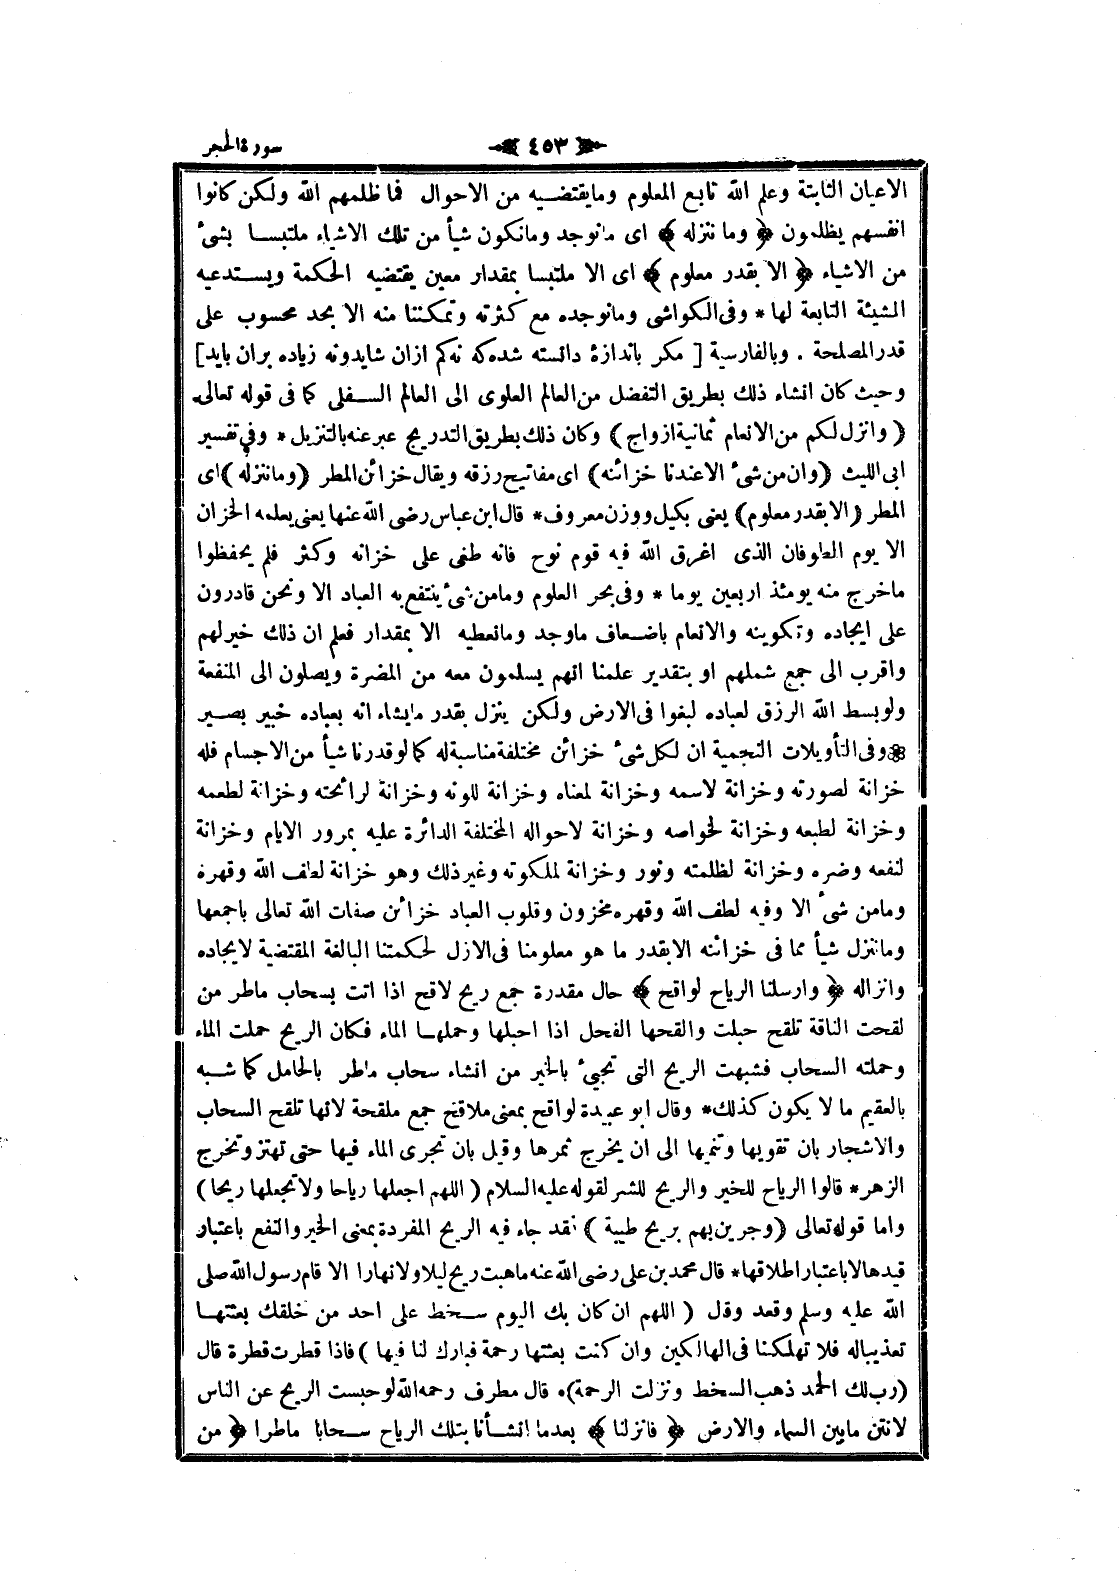 سورة الحجر
٤٥٣
الاعيان الثابتة وعلم الله تابع المعلوم ومايقتضيه من الاحوال فما ظلمهم الله ولكن كانوا
انفسهم يظلمون ﴿ وما ننزله ﴾ اى مانوجد ومانكون شيأ من تلك الاشياء ملتبسا بشىء
من الاشياء ﴿ الا بقدر معلوم ﴾ اى الا ملتبسا بمقدار معين يقتضيه الحكمة ويستدعيه
المشيئة التابعة لها * وفى الكواشى ومانوجده مع كثرته وتمكننا منه الا بحد محسوب على
قدر المصلحة . وبالفارسية [ مكر باندازهٔ دانسته شده كه نه كم ازان شايدونه زياده بران بايد]
وحيث كان انشاء ذلك بطريق التفضل من العالم العلوى الى العالم السفلى كما فى قوله تعالى
( وانزل لكم من الانعام ثمانية ازواج ) وكان ذلك بطريق التدريج عبر عنه بالتنزيل * وفى تفسير
ابى الليث (وان من شىء الا عندنا خزائنه) اى مفاتيح رزقه ويقال خزائن المطر (وماننزله) اى
المطر (الا بقدر معلوم) يعنى بكيل ووزن معروف * قال ابن عباس رضى الله عنها يعنى يعلمه الخزان
الا يوم الطوفان الذى اغرق الله فيه قوم نوح فانه طغى على خزانه وكثر فلم يحفظوا
ماخرج منه يومئذ اربعين يوما * وفى بحر العلوم ومامن شىء ينتفع به العباد الا ونحن قادرون
على ايجاده وتكوينه والانعام باضعاف ماوجد ومانعطيه الا بمقدار فعلم ان ذلك خيرلهم
واقرب الى جمع شملهم او بتقدير علمنا انهم يسلمون معه من المضرة ويصلون الى المنفعة
ولوبسط الله الرزق لعباده لبغوا فى الارض ولكن ينزل بقدر مايشاء انه بعباده خبير بصير
❁ وفى التأويلات النجمية ان لكل شىء خزائن مختلفة مناسبة له كما لو قدرنا شيأ من الاجسام فله
خزانة لصورته وخزانة لاسمه وخزانة لمعناه وخزانة للونه وخزانة لرائحته وخزانة لطعمه
وخزانة لطبعه وخزانة لخواصه وخزانة لاحواله المختلفة الدائرة عليه بمرور الايام وخزانة
لنفعه وضره وخزانة لظلمته ونور وخزانة لملكوته وغير ذلك وهو خزانة لطف الله وقهره
ومامن شىء الا وفيه لطف الله وقهره مخزون وقلوب العباد خزائن صفات الله تعالى باجمعها
وماننزل شيأ مما فى خزائنه الا بقدر ما هو معلومنا فى الازل لحكمتنا البالغة المقتضية لايجاده
وانزاله ﴿ وارسلنا الرياح لواقح ﴾ حال مقدرة جمع ريح لاقح اذا اتت بسحاب ماطر من
لقحت الناقة تلقح حبلت والقحها الفحل اذا احبلها وحملها الماء فكان الريح حملت الماء
وحملته السحاب فشبهت الريح التى تجيىء بالخير من انشاء سحاب ماطر بالحامل كما شبه
بالعقيم ما لا يكون كذلك * وقال ابو عبيدة لواقح بمعنى ملاقح جمع ملقحة لانها تلقح السحاب
والاشجار بان تقويها وتنميها الى ان يخرج ثمرها وقيل بان تجرى الماء فيها حتى تهتز وتخرج
الزهر * قالوا الرياح للخير والريح للشر لقوله عليه السلام ( اللهم اجعلها رياحا ولا تجعلها ريحا )
واما قوله تعالى (وجرين بهم بريح طيبة ) فقد جاء فيه الريح المفردة بمعنى الخير والنفع باعتبار
قيدها لا باعتبار اطلاقها * قال محمد بن على رضى الله عنه ماهبت ريح ليلا ولا نهارا الا قام رسول الله صلى
الله عليه وسلم وقعد وقل ( اللهم ان كان بك اليوم سخط على احد من خلقك بعثتها
تعذيباله فلا تهلكنا فى الهالكين وان كنت بعثتها رحمة فبارك لنا فيها ) فاذا قطرت قطرة قال
(رب لك الحمد ذهب السخط ونزلت الرحمة) * قال مطرف رحمه الله لوحبست الريح عن الناس
لانتن مابين السماء والارض ﴿ فانزلنا ﴾ بعدما انشأنا بتلك الرياح سحابا ماطرا ﴿ من